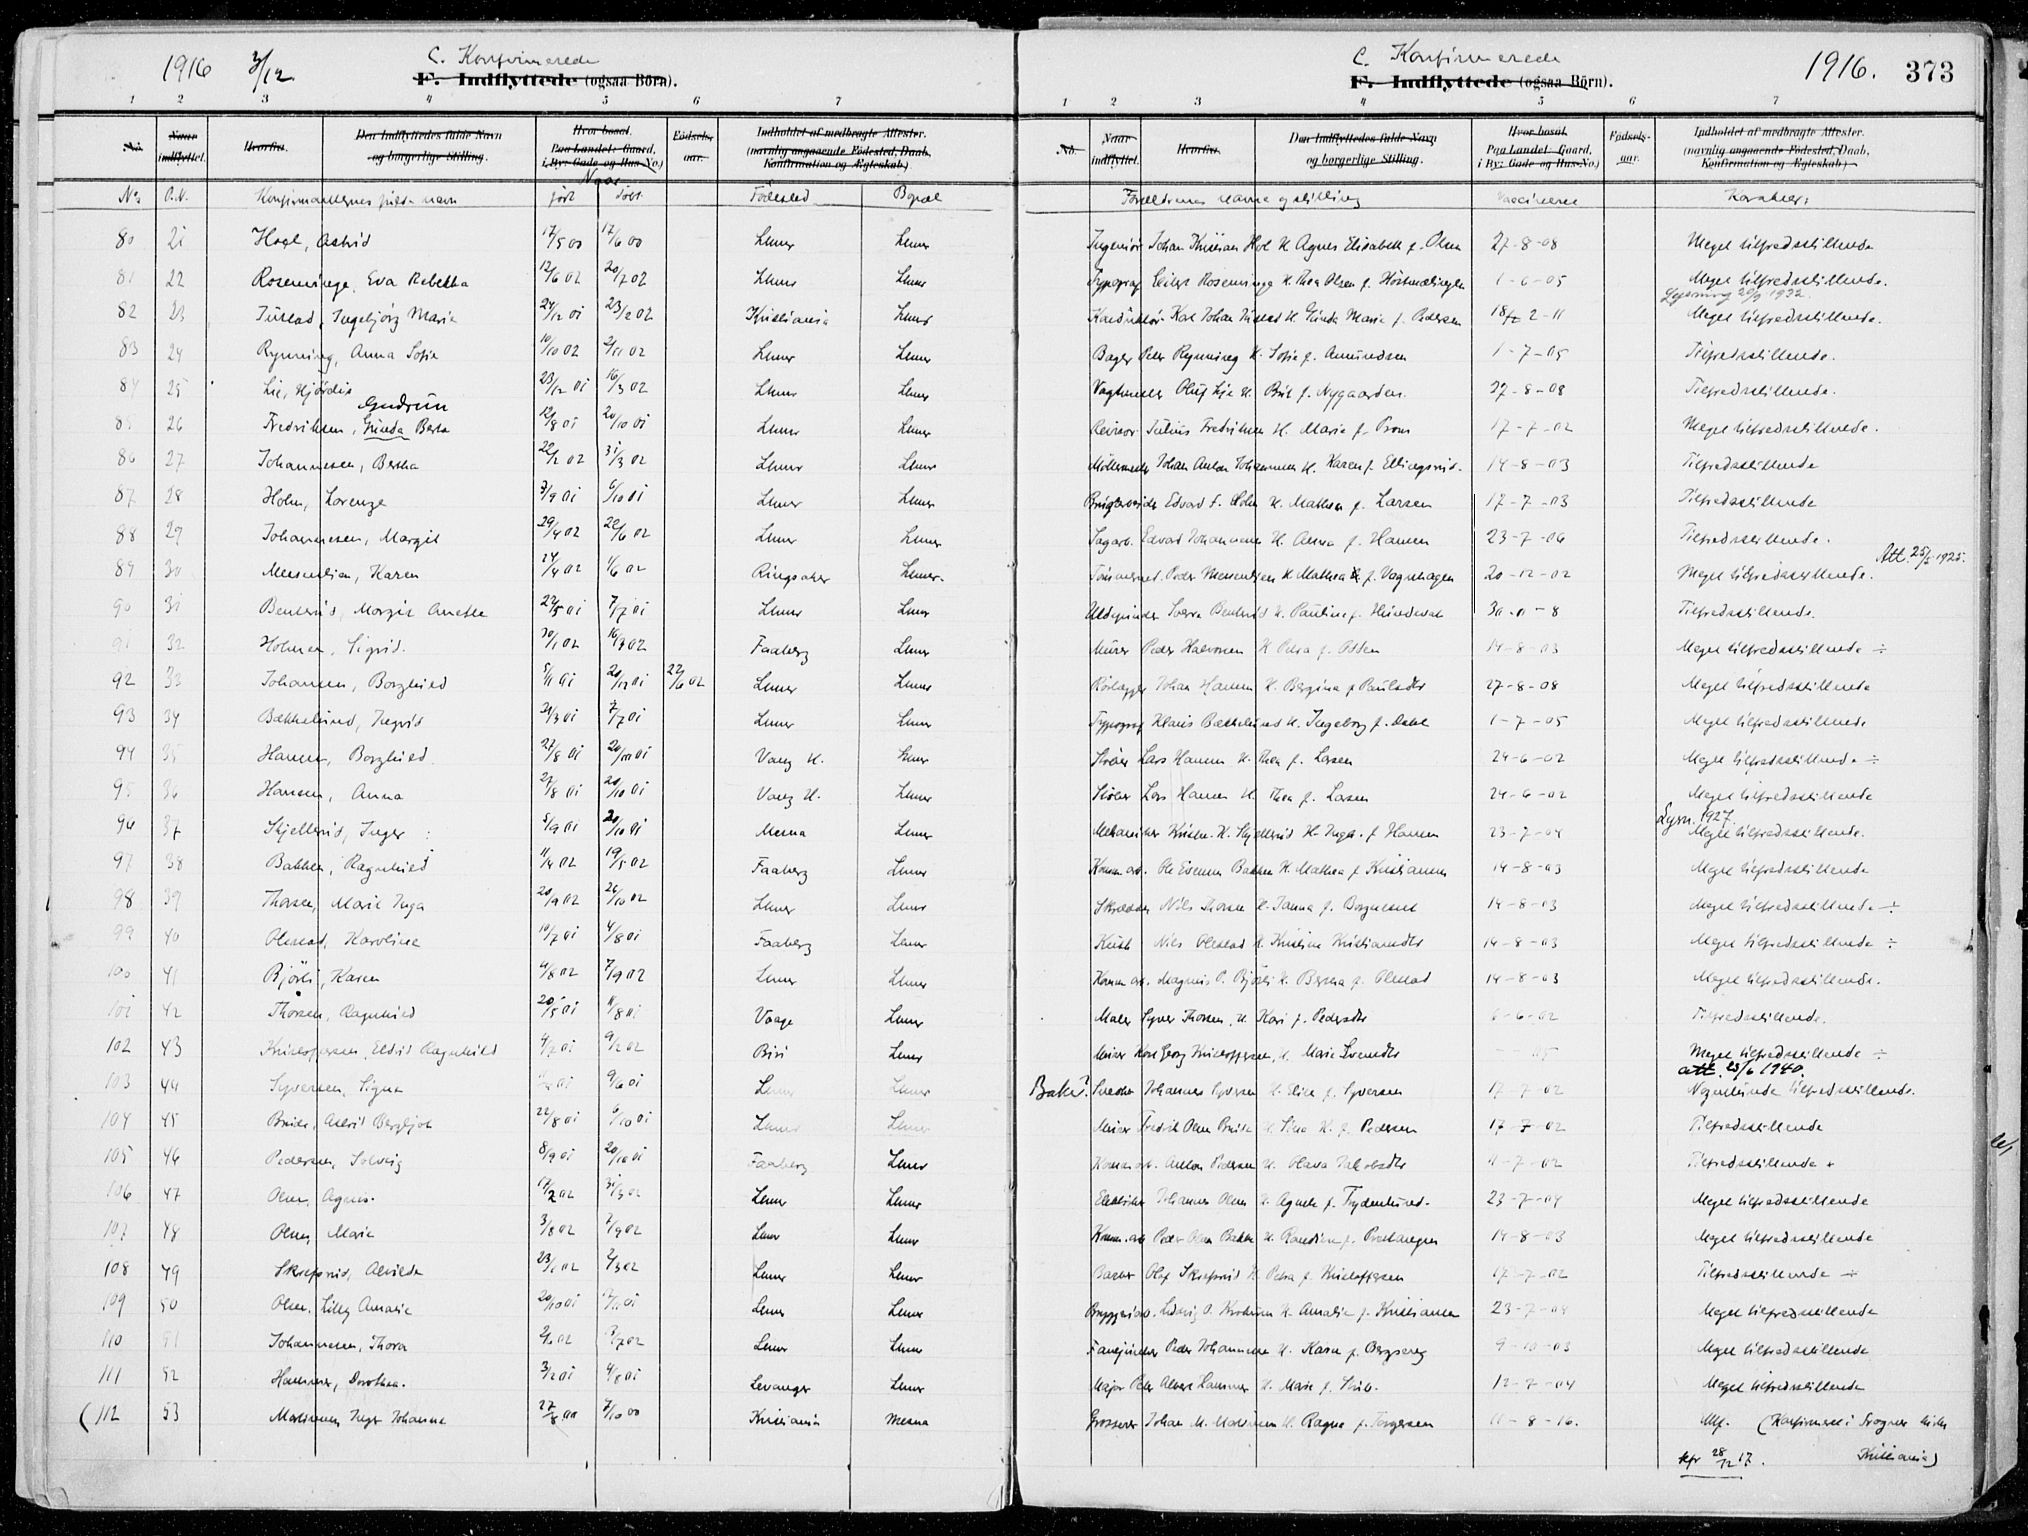 1916 3/12 C. Konfirmerede
F. Indflyttede (ogsaa Börn).
1 2 3 4 5 6 7
No. Naar indflyttet. Hvorfra. Den Indflyttedes fulde Navn og borgerlige Stilling. Hvor bosat. Paa Landet: Gaard, i By: Gade og Hus-No.) Födsels-aar. Indholdet af medbragte Attester. (navnlig angaaende Födested, Daab, Konfirmation og Ægteskab)
Naar
No P.N. Konfirmanternes fulde navn født døbt Fødested Bopæl
80 21 Hoel, Astrid 17/5 00 17/6 00 Lmer Lmer
81 22 Roseninge, Eva Rebekka 12/6 02 20/7 02 Lmer Lmer
82 23 Julstad, Ingebjörg Marie 24/12 01 23/2 02 Kristiania Lmer
83 24 Rynning, Anna Sofie 10/10 02 2/11 02 Lmer Lmer
84 25 Lie, Hjördis 23/12 01 16/3 02 Lmer Lmer
Gudrun
85 26 Fredriksen, Gunda Berta 12/8 01 20/10 01 Lmer Lmer
86 27 Johannesen, Bertha 22/2 02 31/3 02 Lmer Lmer
87 28 Holm, Lorenze 7/9 01 6/10 01 Lmer Lmer
88 29 Johannesen, Margit 29/4 02 22/6 02 Lmer Lmer
89 30 Messenlien, Karen 24/4 02 1/6 02 Ringsaker Lmer
90 31 Benterud, Margit Anette 22/5 01 7/7 01 Lmer Lmer
91 32 Holmen, Sigrid 30/1 02 16/3 02 Faaberg Lmer
92 33 Johansen, Borghild 5/11 01 26/12 01 22/6 02 Lmer Lmer
93 34 Bækkelund, Ingrid 24/3 01 7/7 01 Lmer Lmer
94 35 Hansen, Borghild 27/8 01 20/10 01 Vang H. Lmer
95 36 Hansen, Anna 27/8 01 20/10 01 Vang H. Lmer
96 37 Skjellerud, Inger 5/9 01 20/10 01 Mesna Lmer
97 38 Bakken, Ragnhild 11/4 02 19/5 02 Faaberg Lmer
98 39 Thorsen, Marie Inga 20/9 02 26/10 02 Lmer Lmer
99 40 Olestad, Karoline 10/7 01 4/8 01 Faaberg Lmer
100 41 Bjørli, Karen 4/8 02 7/9 02 Lmer Lmer
101 42 Thorsen, Ragnhild 20/5 01 11/8 01 Vaage Lmer
102 43 Kristoffersen, Eldrid Ragnhild 4/7 01 9/2 02 Biri Lmer
103 44 Syversen, Signe 9/6 01 Lmer Lmer
104 45 Bruun, Astrid Bergljot 22/8 01 6/10 01 Lmer Lmer
105 46 Pedersen, Solveig 8/9 01 20/10 01 Faaberg Lmer
106 47 Olsen, Agnes 17/2 02 31/3 02 Lmer Lmer
107 48 Olsen, Marie 3/8 02 7/9 02 Lmer Lmer
108 49 Skrefsrud, Alvilde 23/1 02 2/3 02 Lmer Lmer
109 50 Olsen, Lilly Amalie 20/10 01 Lmer Lmer
110 51 Johannesen, Thora Lmer Lmer
111 52 Hammer, Dorothea 3/2 01 4/8 01 Levanger Lmer
(112 53 Martinsen, Inger Johanne 27/8 00 7/10 00 Kristiania Mesna
C. Konfirmerede 1916. 373
F. Indflyttede (ogsaa Börn).
1 2 3 4 5 6 7
No. Naar indflyttet. Hvorfra. Den Indflyttedes fulde Navn og borgerlige Stilling. Hvor bosat. Paa Landet: Gaard, i By: Gade og Hus-No.) Födsels-aar. Indholdet af medbragte Attester. (navnlig angaaende Födested, Daab, Konfirmation og Ægteskab)
Forældrenes navne og stilling Vaccineret Karakter
Ingeniør Johan Kristian Hoel H. Agnes Elisabeth f. Olsen 27-8-08 Meget tilfredsstillende
Typograf Eilert Roseninge H. Thea Olsen f. 1-6-05 Meget tilfredsstillende.
Lysning 20/9 1932.
Konduktør Karl Johan Julstad H. Gunda Marie f. Pedersen 2-11 Meget tilfredsstillende.
Bager Peder Rynning H. Sofie f. Amundsen 1-7-05 Tilfredsstillende.
Vagtmester Oluf Lie H. Brit f. Nygaarden 27-8-08 Tilfredsstillende.
Revisor Julius Fredriksen H. Marie f. Prom 17-7-02 Meget tilfredsstillende.
Møllermester Johan Anton Johannesen H. Karen f. Ellingsrud 14-8-03 Tilfredsstillende
Edvard Holm H. Mathea f. Larsen 17-7-03 Tilfredsstillende
Sagarb. Edvard Johannesen H. Anna f. Hansen 23-7-06 Tilfredsstillende.
Att. 25/5 1925.
Tömmermd. Peder Messenlien H. Mathea f. Vognhagen 20-12-02 Meget tilfredsstillende.
Uldspinder Sverre Benterud H. Pauline f. 30-11-8 Tilfredsstillende.
Murer Peder Halvorsen H. Petra f. 14-8-03 Meget tilfredsstillende ÷
Rørlægger Johan Hansen H. Bergine f. Paulsdtr 27-8-08 Meget tilfredsstillende
Typograf Hans Bækkelund H. Ingeborg f. Dahl 1-7-05 Meget tilfredsstillende
Støber Lars Hansen H. Thea f. Larsen 24-6-02 Meget tilfredsstillende ÷
Støber Lars Hansen H. Thea f. Larsen 24-6-02 Meget tilfredsstillende
Lysn. 1927.
Mekaniker Kristen H. Skjellerud H. Inga f. Hansen 23-7-04 Meget tilfredsstillende.
Komm.arb. Ole Evensen Bakken H. Mathea f. Kristiansen 14-8-03 Meget tilfredsstillende
Skrædder Nils Thorsen H. Janna f. 14-8-03 Meget tilfredsstillende ÷
Kusk Nils Olestad H. Kristine Kristiansdtr 14-8-03 Meget tilfredsstillende ÷
Komm.arb. Magnus P. Bjørli H. f. Olestad 14-8-03 Meget tilfredsstillende.
Maler Syver Thorsen, H. Kari f. Pedersdtr 6-6-02 Tilfredsstillende.
Murer Karl Georg Kristoffersen, H. Marie Svendsdtr 05 Meget tilfredsstillende ÷
att. 25/6 1940.
Baker? Johannes Syversen H. Elise f. Syversen 17-7-02 Nogenlunde tilfredsstillende.
Murer Fredrik Olsen Bruun H. f. Pedersen 17-7-02 Tilfredsstillende
Komm.arb. Anton Pedersen H. Olava Jakobsdtr 1-7-02 Tilfredsstillende +
Elektriker Johannes Olsen H. Agnete f. Frydenlund 23-7-04 Meget tilfredsstillende
Komm.arb. Peder Olsen Bakken H. Randine f. 14-8-03 Meget tilfredsstillende
Olaf Skrefsrud H. Petra f. Kristoffersen 17-7-02 Tilfredsstillende ÷
Bryggeriarb. Ludvig O. H. Amalie f. Kristiansen 23-7-04 Meget tilfredsstillende
Peder Johannesen H. Karen f. Bergseng 9-10-03 Meget tilfredsstillende
Major Peter Albert Hammer H. Marie f. 12-7-04 Meget tilfredsstillende
Grosserer Johan M. Martinsen H. Ragna f. Torgersen 11-8-16. Mtf. (Konfirmert i Frogner kirke
Kristiania)
kfr 28/12 17.